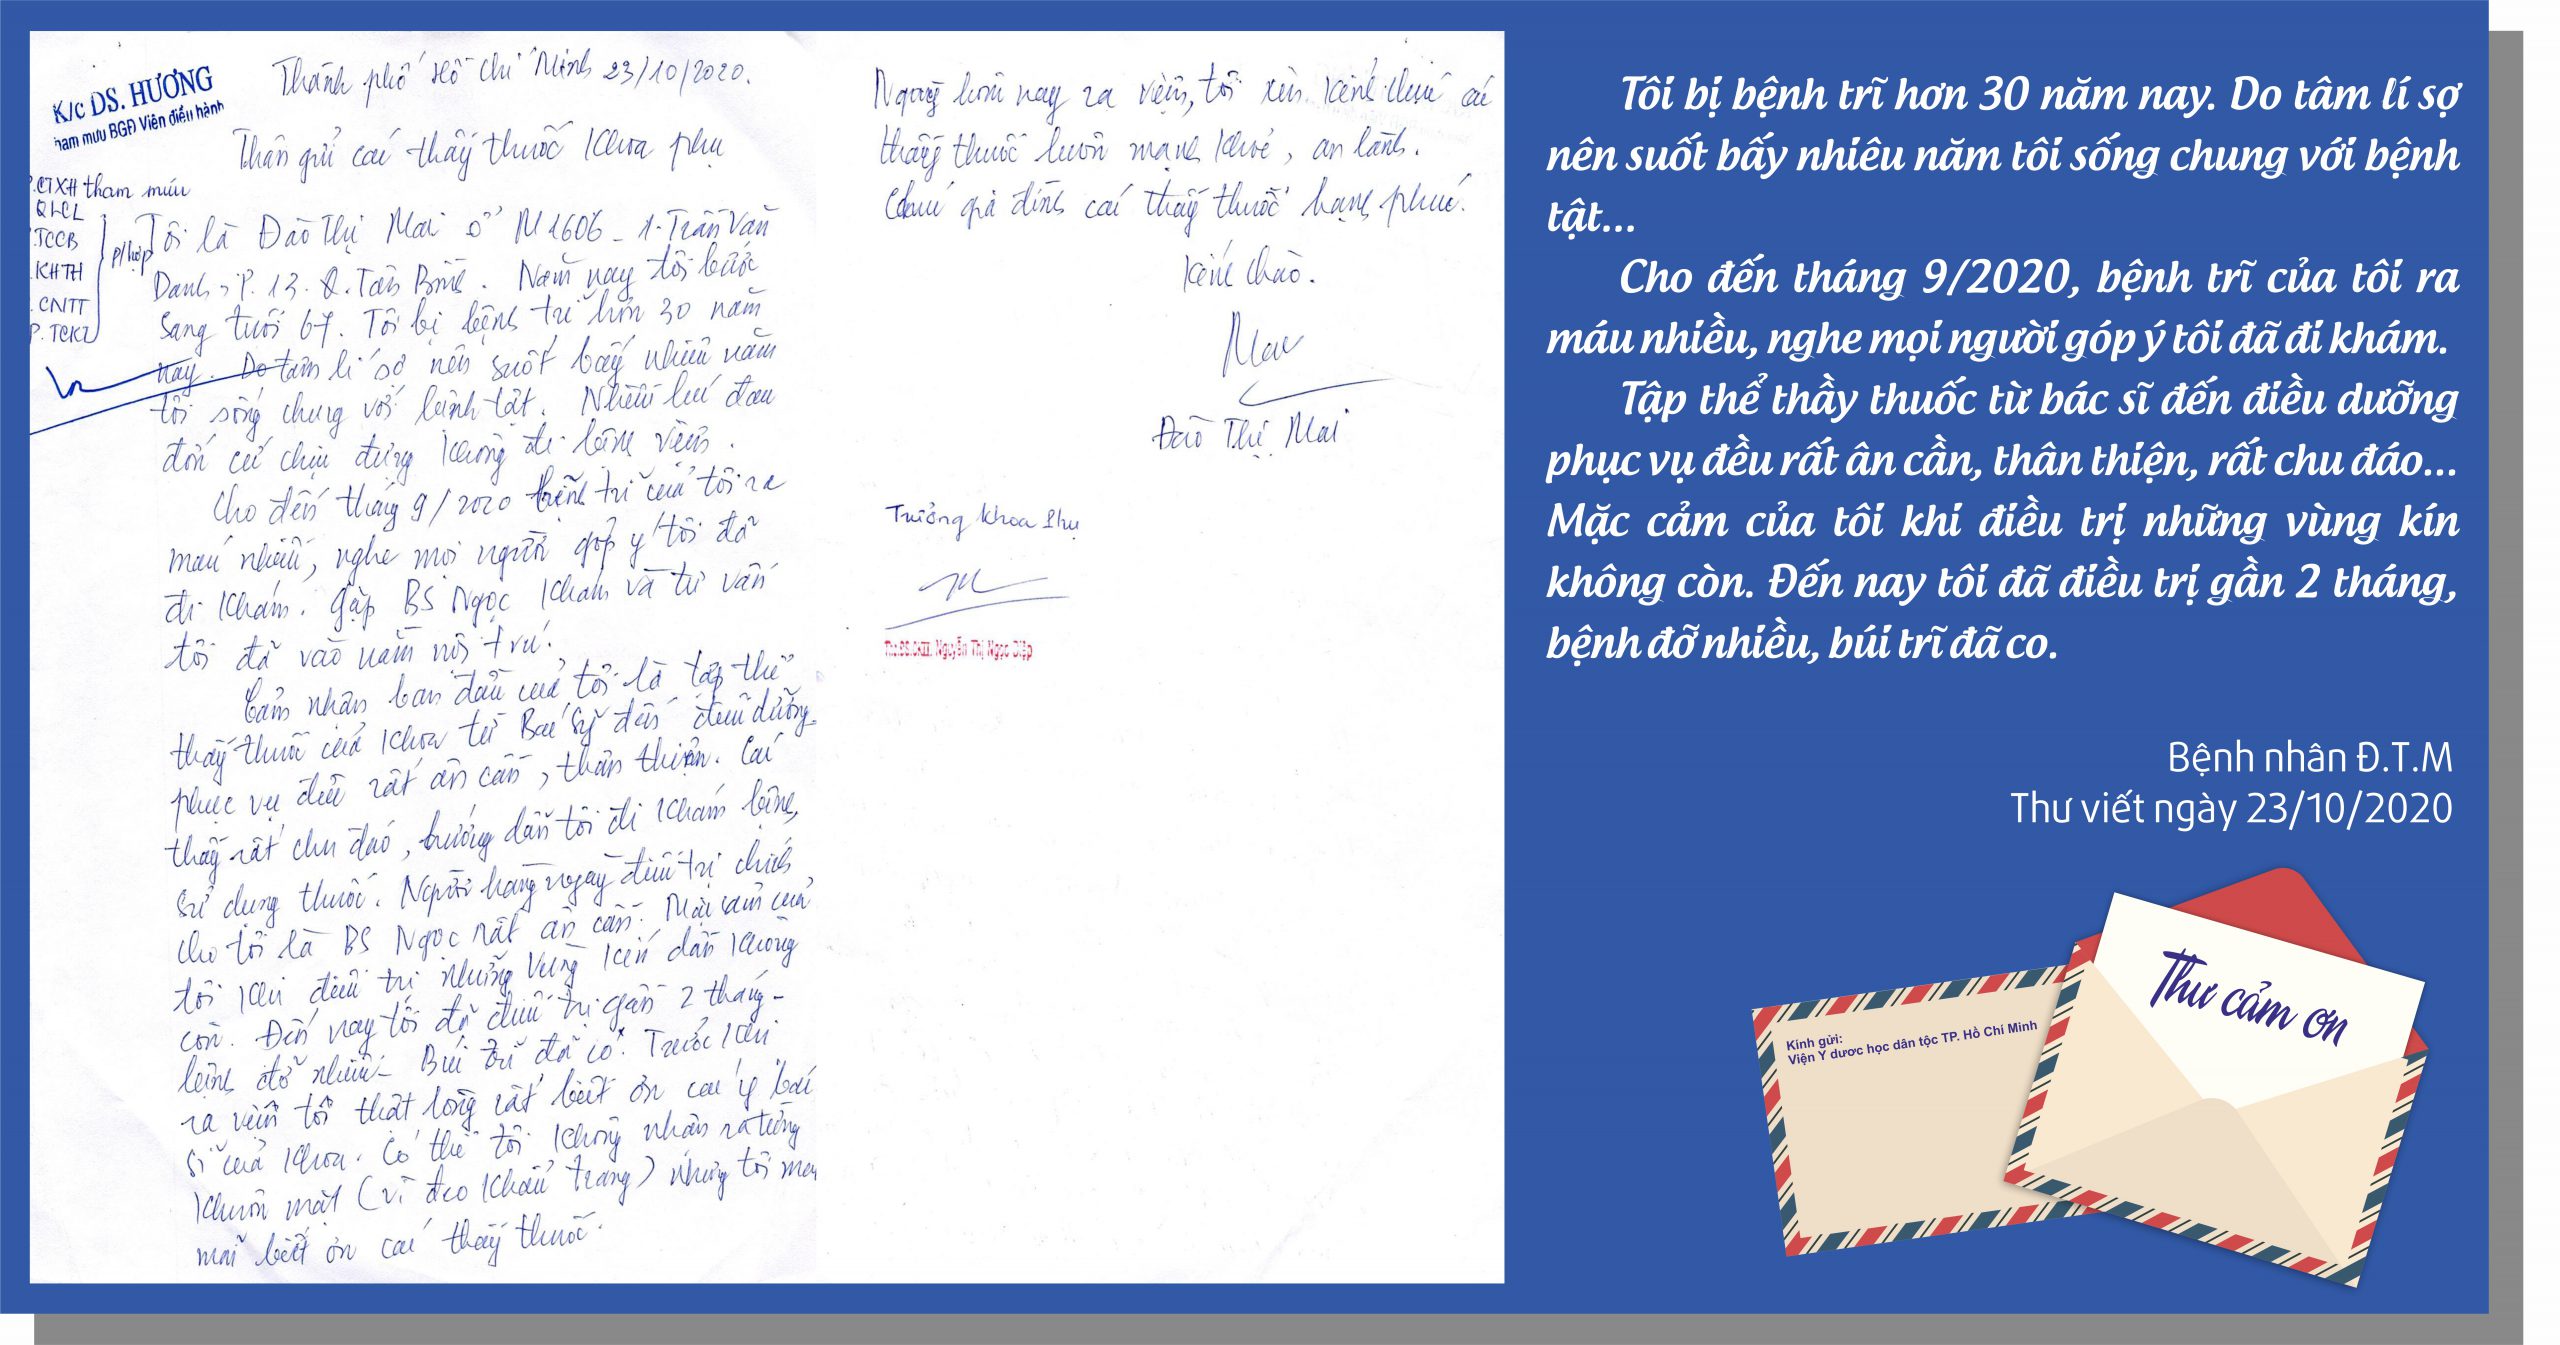 K/c DS. HƯƠNG
ham mưu BGĐ Viên điều hành
Thành phố Hồ Chí Minh 23/10/2020.
Thân gửi các thầy thuốc khoa phụ
P.CTXH tham mưu
QLCL
TCCB
KHTH
CNTT
P.TCKT
p/hợp
Tôi là Đào Thị Mai ở M1606 - 1. Trần Văn
Danh, P. 13. Q. Tân Bình. Năm nay tôi bước
sang tuổi 67. Tôi bị bệnh trĩ hơn 30 năm
nay. Do tâm lí sợ nên suốt bấy nhiêu năm
tôi sống chung với bệnh tật. Nhiều lúc đau
đớn cứ chịu đựng không đi bệnh viện.
Cho đến tháng 9/2020 bệnh trĩ của tôi ra
máu nhiều, nghe mọi người góp ý tôi đã
đi khám. Gặp BS Ngọc khám và tư vấn
tôi đã vào nằm nội trú.
Cảm nhận ban đầu của tôi là tập thể
thầy thuốc của khoa từ Bác Sỹ đến điều dưỡng
phục vụ đều rất ân cần, thân thiện. Các
thầy rất chu đáo, hướng dẫn tôi đi khám bệnh,
sử dụng thuốc. Người hàng ngày điều trị chính
cho tôi là BS Ngọc rất ân cần. Mặc cảm của
tôi khi điều trị những vùng kín dần không
còn. Đến nay tôi đã điều trị gần 2 tháng -
bệnh đỡ nhiều - Búi trĩ đã co. Trước khi
ra viện tôi thật lòng rất biết ơn các y bác
sĩ của khoa. Có thể tôi không nhận ra từng
khuôn mặt (vì đeo khẩu trang) nhưng tôi mãi
mãi biết ơn các thầy thuốc.
Ngày hôm nay ra viện, tôi xin kính chúc các
thầy thuốc luôn mạnh khoẻ, an lành.
Chúc gia đình các thầy thuốc hạnh phúc.
Kính chào.
Mai
Đào Thị Mai
Trưởng khoa Phụ
Ths.BS.CKII. Nguyễn Thị Ngọc Diệp
Tôi bị bệnh trĩ hơn 30 năm nay. Do tâm lí sợ
nên suốt bấy nhiêu năm tôi sống chung với bệnh
tật...
Cho đến tháng 9/2020, bệnh trĩ của tôi ra
máu nhiều, nghe mọi người góp ý tôi đã đi khám.
Tập thể thầy thuốc từ bác sĩ đến điều dưỡng
phục vụ đều rất ân cần, thân thiện, rất chu đáo...
Mặc cảm của tôi khi điều trị những vùng kín
không còn. Đến nay tôi đã điều trị gần 2 tháng,
bệnh đỡ nhiều, búi trĩ đã co.
Bệnh nhân Đ.T.M
Thư viết ngày 23/10/2020
Kính gửi:
Viện Y dược học dân tộc TP. Hồ Chí Minh
Thư cảm ơn